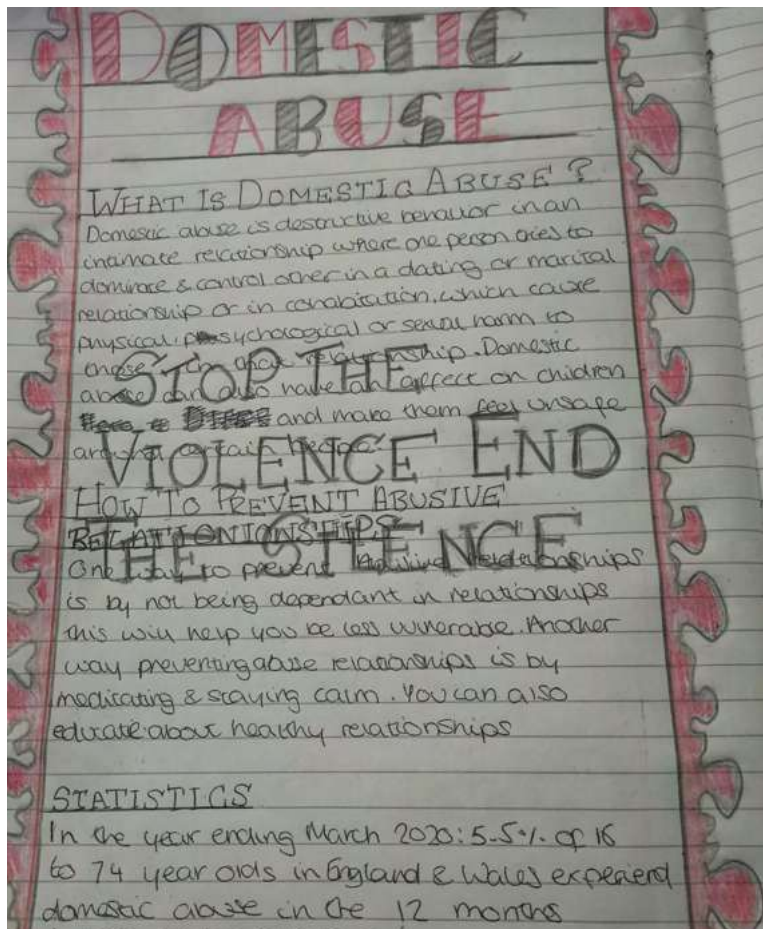 DOMESTIC
ABUSE
WHAT IS DOMESTIC ABUSE?
Domestic abuse is destructive behavior in an
intamate relationship where one person tries to
dominate & control other in a dating or marital
relationship or in cohabitation, which cause
physical, psychological or sexual harm to
those in that relationship. Domestic
abuse can also have an affect on children
and make them feel unsafe
around certain
STOP THE
VIOLENCE END
THE SILENCE
HOW TO PREVENT ABUSIVE
RELATIONIONSHIPS
One way to prevent abusive relationships
is by not being dependant in relationships
this will help you be less vulnerable. Another
way preventing abuse relationships is by
medicating & staying calm. You can also
educate about healthy relationships
STATISTICS
In the year ending March 2020: 5.5% of 16
to 74 year olds in England & Wales experiend
domestic abuse in the 12 months